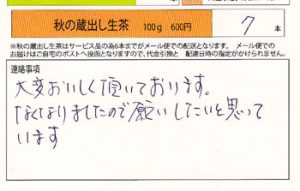 秋の蔵出し生茶 100g 600円 7 本
※秋の蔵出し生茶はサービス品の為6本までがメール便での配送となります。 メール便での
お届けはご自宅のポストへ投函となりますので、代金引換と 配達日時の指定がかけられません。
連絡事項
大変おいしく頂いております。
なくなりましたので願いしたいと思って
います